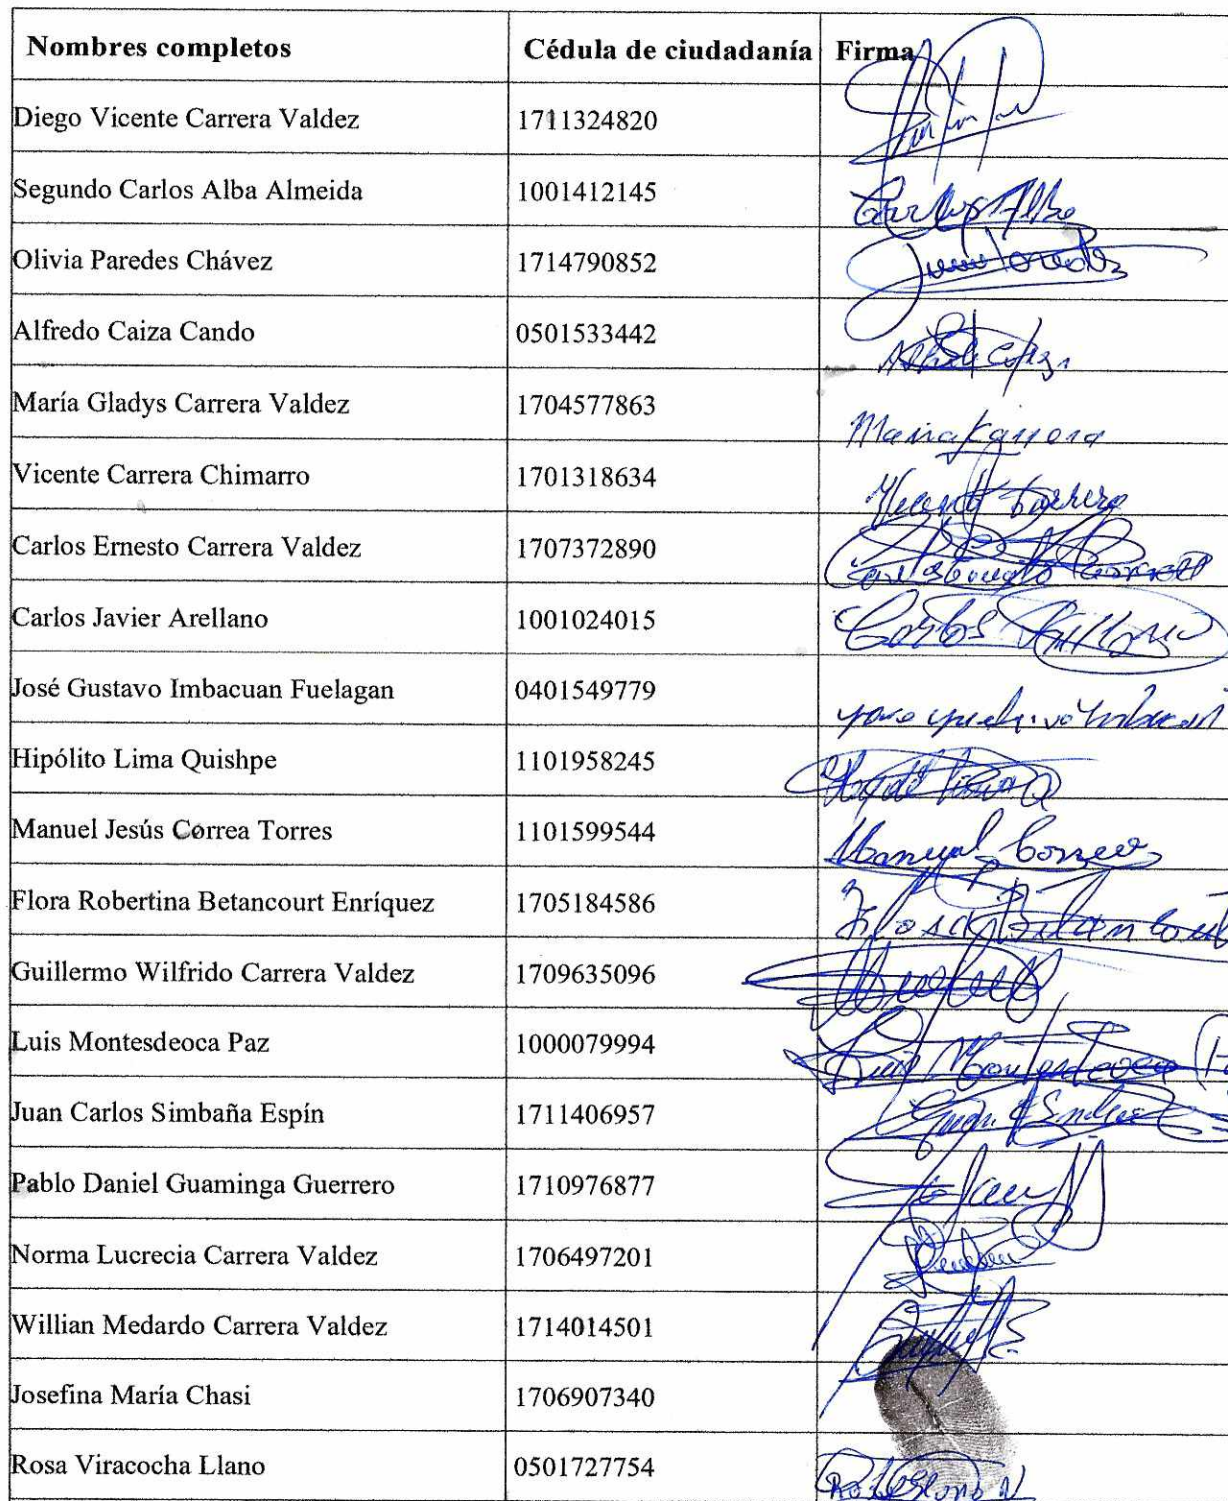 Nombres completos Cédula de ciudadanía Firma
Diego Vicente Carrera Valdez 1711324820
Segundo Carlos Alba Almeida 1001412145 Carlos Alba
Olivia Paredes Chávez 1714790852
Alfredo Caiza Cando 0501533442
María Gladys Carrera Valdez 1704577863
Vicente Carrera Chimarro 1701318634
Carlos Ernesto Carrera Valdez 1707372890
Carlos Javier Arellano 1001024015 Carlos
José Gustavo Imbacuan Fuelagan 0401549779
Hipólito Lima Quishpe 1101958245
Manuel Jesús Correa Torres 1101599544 Manuel Correa
Flora Robertina Betancourt Enríquez 1705184586
Guillermo Wilfrido Carrera Valdez 1709635096
Luis Montesdeoca Paz 1000079994 Luis Montesdeoca
Juan Carlos Simbaña Espín 1711406957
Pablo Daniel Guaminga Guerrero 1710976877
Norma Lucrecia Carrera Valdez 1706497201
Willian Medardo Carrera Valdez 1714014501
Josefina María Chasi 1706907340
Rosa Viracocha Llano 0501727754